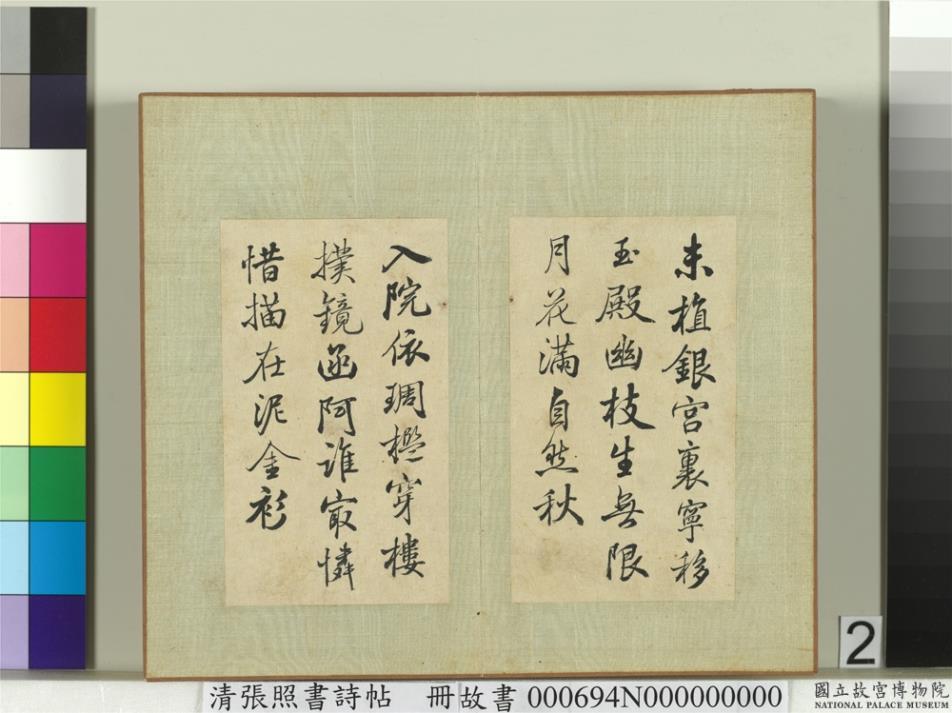 未植銀宮裏寧移
玉殿幽枝生無限
月花滿自然秋
入院依琱檻穿樓
撲鏡函阿誰㝡憐
惜描在泥金衫
2
清張照書詩帖 冊故書 000694N000000000
國立故宮博物院
NATIONAL PALACE MUSEUM